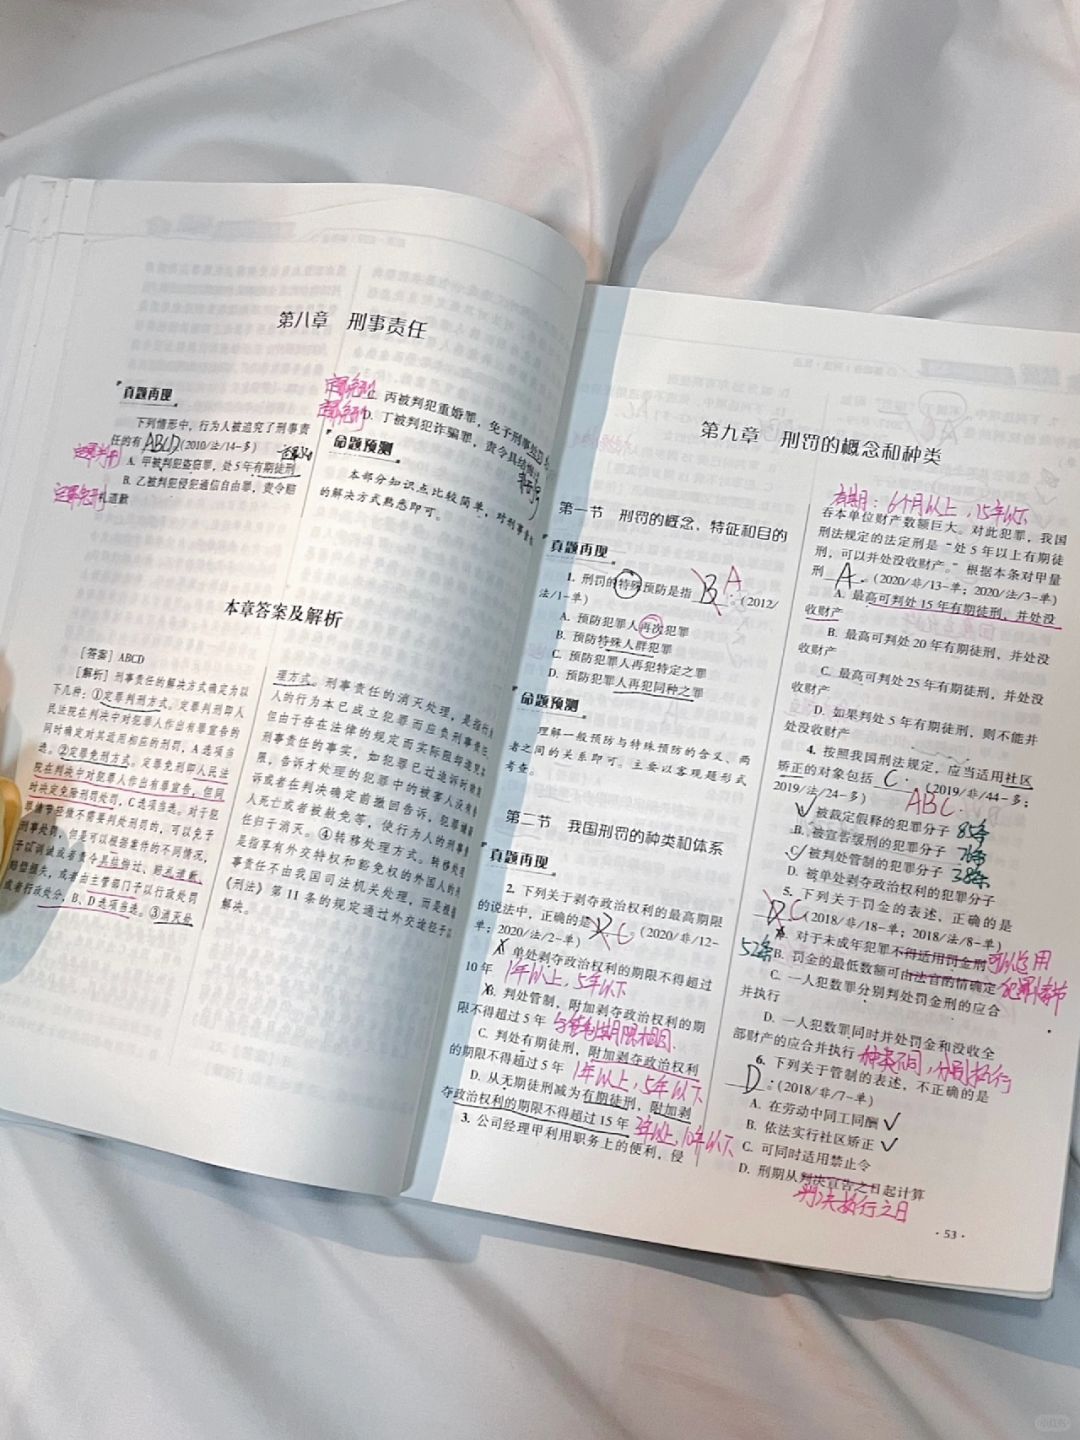 第八章 刑事责任
真题再现
下列情形中，行为人被追究了刑事责
任的有ABCD(2010/法/14-多)
A. 甲被判犯盗窃罪，处5年有期徒刑
B. 乙被判犯侵犯通信自由罪，责令赔
礼道歉
定罪免刑
定罪免刑
丙被判犯重婚罪，免于刑事处罚
定罪免刑
D. 丁被判犯诈骗罪，责令具结悔过
命题预测
本部分知识点比较简单，对刑事责任
的解决方式熟悉即可。
本章答案及解析
[答案] ABCD
[解析] 刑事责任的解决方式确定为以
下几种：①定罪判刑方式。定罪判刑即人
民法院在判决中对犯罪人作出有罪宣告的
同时确定对其适用相应的刑罚，A选项当
选。②定罪免刑方式。定罪免刑即人民法
院在判决中对犯罪人作出有罪宣告，但同
时决定免除刑罚处罚，C选项当选。对于犯
罪情节轻微不需要判处刑罚的，可以免予
刑事处罚，但是可以根据案件的不同情况，
予以训诫或者责令具结悔过、赔礼道歉、
赔偿损失，或者由主管部门予以行政处罚
或者行政处分，B、D选项当选。③消灭处
理方式。刑事责任的消灭处理，是指行
人的行为本已成立犯罪而应负刑事责任，
但由于存在法律的规定而实际阻却追究
刑事责任的事实，如犯罪已过追诉时效
限，告诉才处理的犯罪中的被害人没有
诉或者在判决确定前撤回告诉，犯罪嫌
人死亡或者被赦免等，使行为人的刑事
任归于消灭。④转移处理方式。转移处理
是指享有外交特权和豁免权的外国人的
事责任不由我国司法机关处理，而是根据
《刑法》第11条的规定通过外交途径予以
解决。
第九章 刑罚的概念和种类
第一节 刑罚的概念、特征和目的
真题再现
1. 刑罚的特殊预防是指 B A。(2012/
法/1-单)
A. 预防犯罪人再次犯罪
B. 预防特殊人群犯罪
C. 预防犯罪人再犯特定之罪
D. 预防犯罪人再犯同种之罪
命题预测
理解一般预防与特殊预防的含义、两
者之间的关系即可。主要以客观题形式
考查。
第二节 我国刑罚的种类和体系
真题再现
2. 下列关于剥夺政治权利的最高期限
的说法中，正确的是 C。(2020/非/12-
单；2020/法/2-单)
A. 单处剥夺政治权利的期限不得超过
10年 1年以上，5年以下
B. 判处管制，附加剥夺政治权利的期
限不得超过5年 与管制期限相同.
C. 判处有期徒刑，附加剥夺政治权利
的期限不得超过5年 1年以上，5年以下
D. 从无期徒刑减为有期徒刑，附加剥
夺政治权利的期限不得超过15年 3年以上，10年以下
3. 公司经理甲利用职务上的便利，侵
有期：6个月以上，15年以下
吞本单位财产数额巨大。对此犯罪，我国
刑法规定的法定刑是“处5年以上有期徒
刑，可以并处没收财产。”根据本条对甲量
刑 A。(2020/非/13-单；2020/法/3-单)
A. 最高可判处15年有期徒刑，并处没
收财产
B. 最高可判处20年有期徒刑，并处没
收财产
C. 最高可判处25年有期徒刑，并处没
收财产
D. 如果判处5年有期徒刑，则不能并
处没收财产
4. 按照我国刑法规定，应当适用社区
矫正的对象包括 C。(2019/非/44-多；
2019/法/24-多) ABC.
A. 被裁定假释的犯罪分子 85条
B. 被宣告缓刑的犯罪分子 76条
C. 被判处管制的犯罪分子 38条
D. 被单处剥夺政治权利的犯罪分子
5. 下列关于罚金的表述，正确的是
C (2018/非/18-单；2018/法/8-单)
A. 对于未成年犯罪不得适用罚金刑 可以适用
52条 B. 罚金的最低数额可由法官酌情确定 犯罪情节
C. 一人犯数罪分别判处罚金刑的应合
并执行
D. 一人犯数罪同时并处罚金和没收全
部财产的应合并执行 种类不同，分别执行
6. 下列关于管制的表述，不正确的是
D。(2018/非/7-单)
A. 在劳动中同工同酬
B. 依法实行社区矫正
C. 可同时适用禁止令
D. 刑期从判决宣告之日起计算
判决执行之日
·53·
小红书